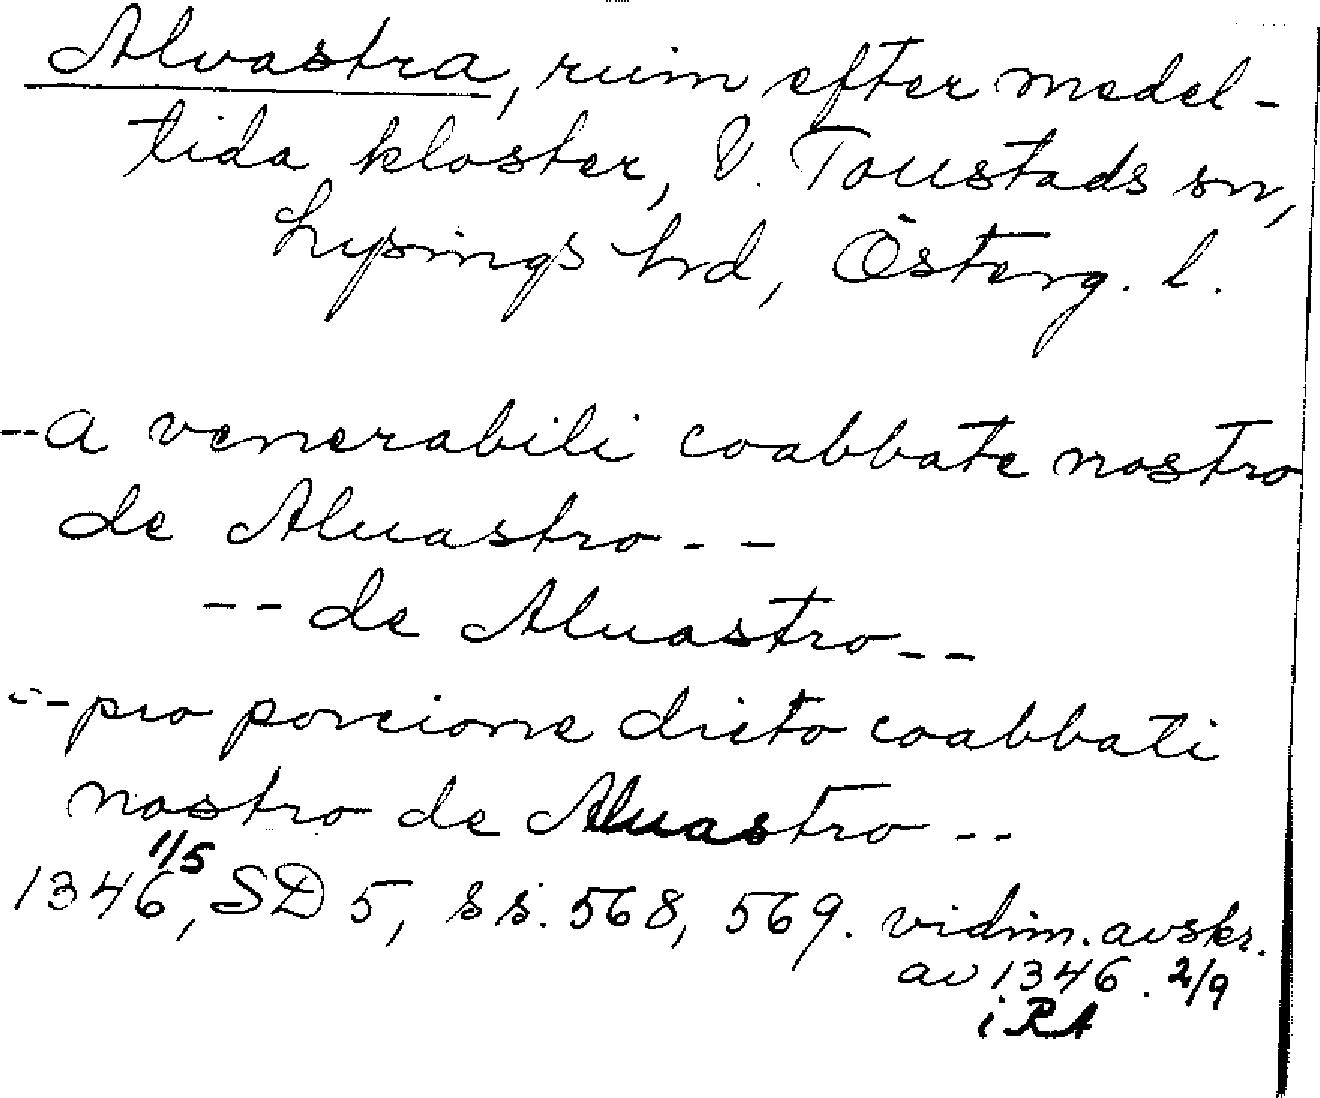 Alvastra, ruin efter medel-
tida kloster, V. Toustads sn,
Lysings hrd, Österg. l.
--a venerabili coabbate nostro
de Aluastro--
--de Aluastro--
--pro porcione dicto coabbati
nostro de Aluastro--
1346 1/5, SD 5, ss. 568, 569. vidim. avskr.
av 1346. 2/9
i RA